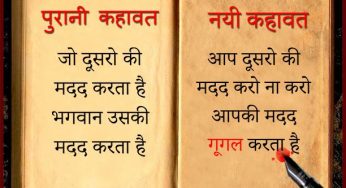 पुरानी कहावत
जो दूसरो की
मदद करता है
भगवान उसकी
मदद करता है
नयी कहावत
आप दूसरो की
मदद करो ना करो
आपकी मदद
गूगल करता है